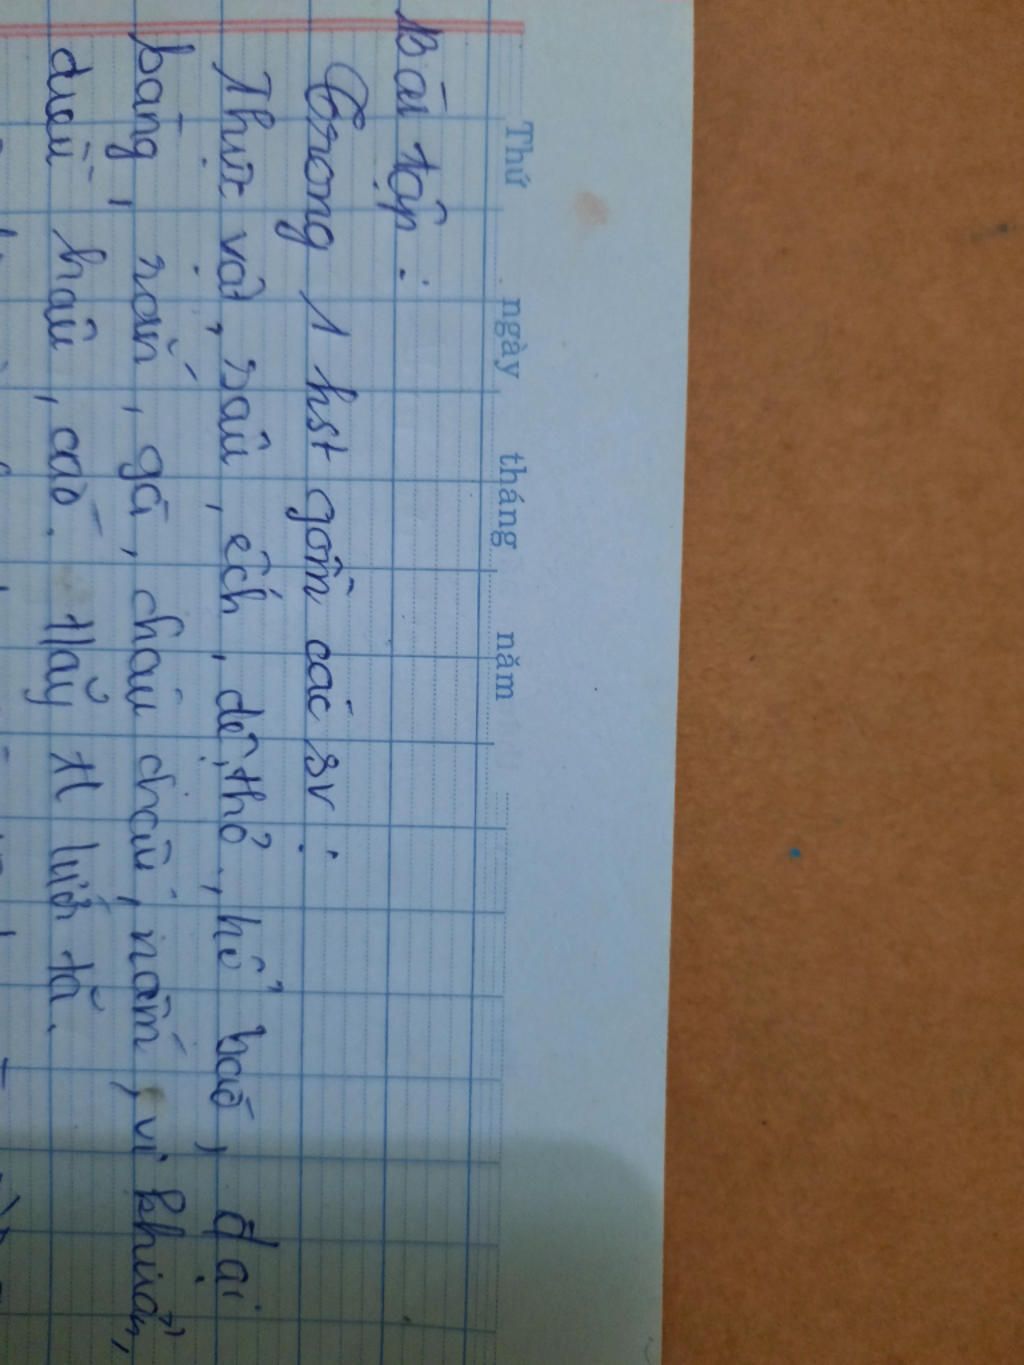 Thứ ngày tháng năm
Bài tập:
Trong 1 hst gồm các sv:
Thực vật, sâu, ếch, dê, thỏ, hổ báo, đại
bàng, rắn, gà, châu chấu, nấm, vi khuẩn,
diều hâu, cáo. Hãy tl lưới tă.